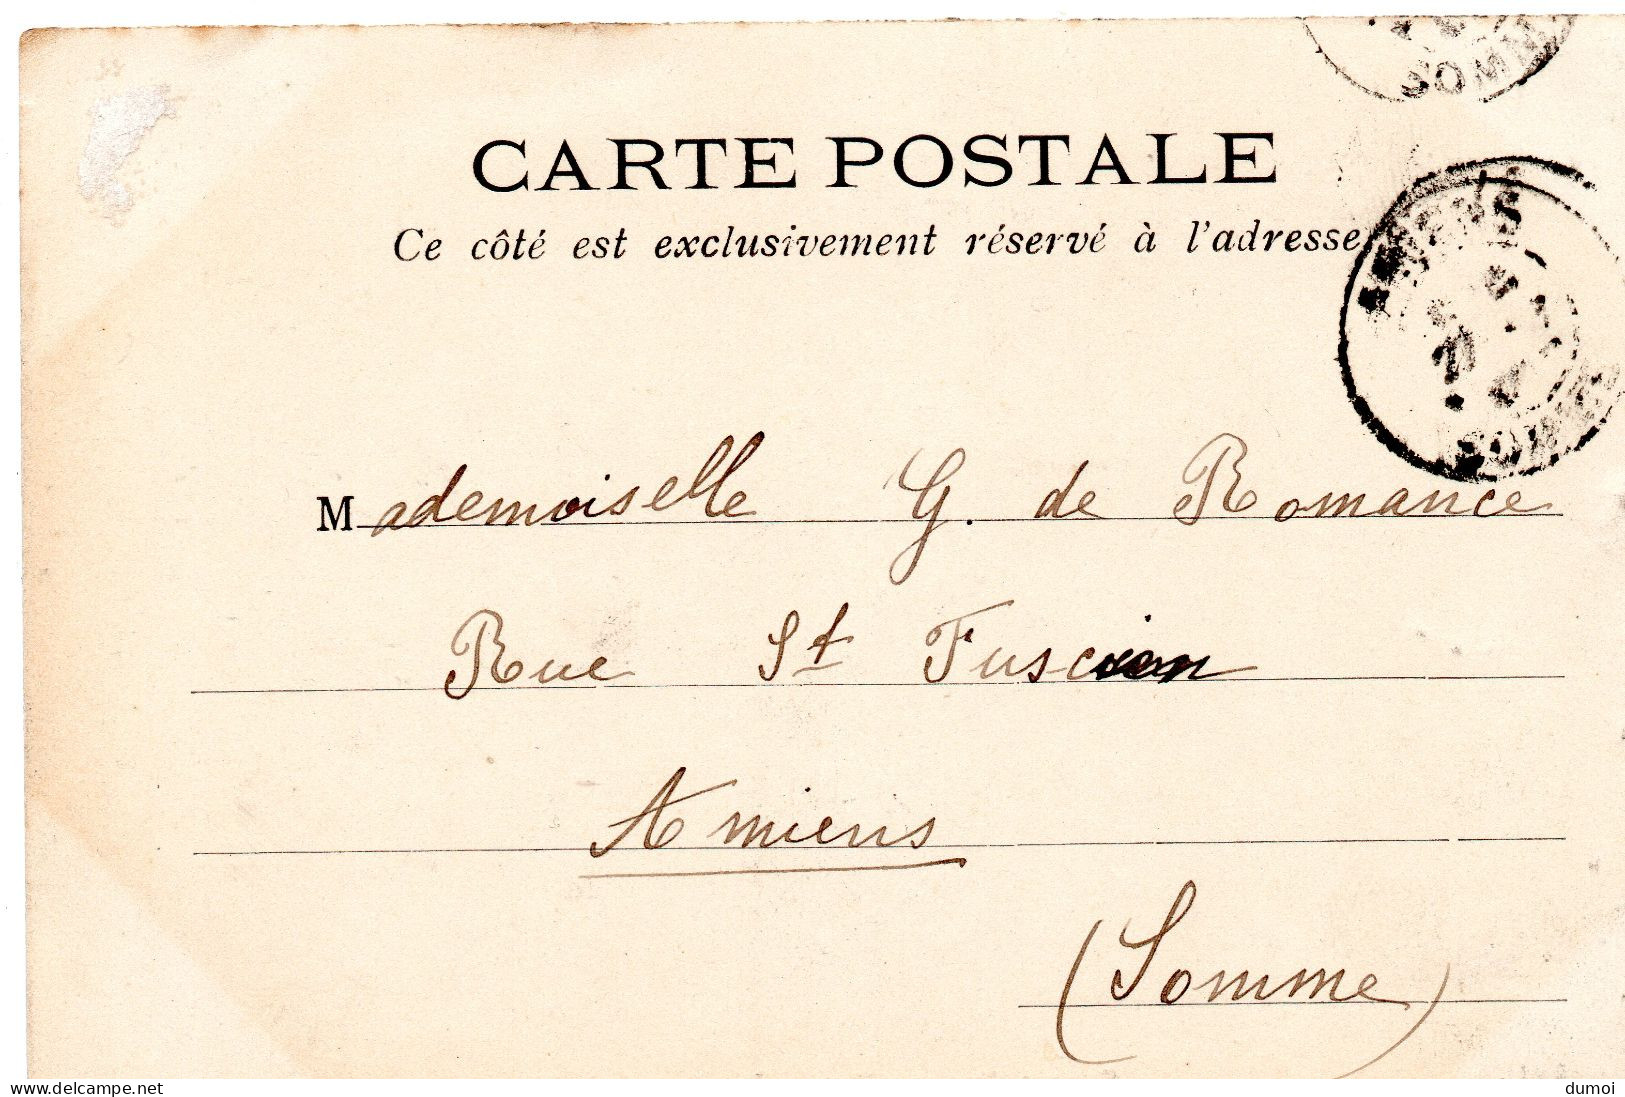 CARTE POSTALE
Ce côté est exclusivement réservé à l'adresse
Mademoiselle G. de Romance
Rue St Fuscien
Amiens
(Somme)
delcampe.net
dumoi